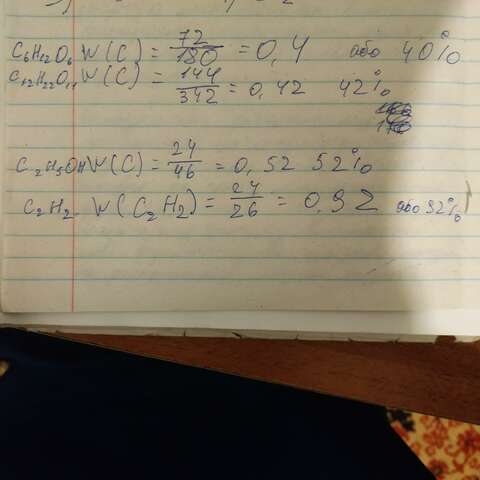 C₆H₁₂O₆ W(C) = 72/180 = 0,4 або 40%
C₁₂H₂₂O₁₁ W(C) = 144/342 = 0,42 42%
C₂H₅OH W(C) = 24/46 = 0,52 52%
C₂H₂ W(C₂H₂) = 24/26 = 0,92 або 92%